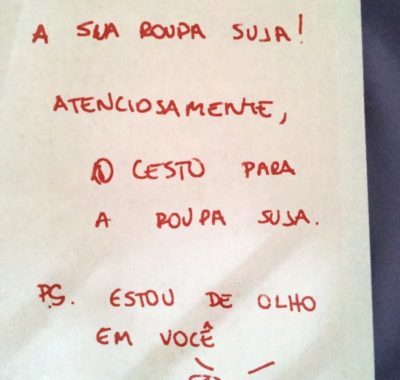 A SUA ROUPA SUJA!
ATENCIOSAMENTE,
O CESTO PARA
A ROUPA SUJA.
P.S. ESTOU DE OLHO
EM VOCÊ